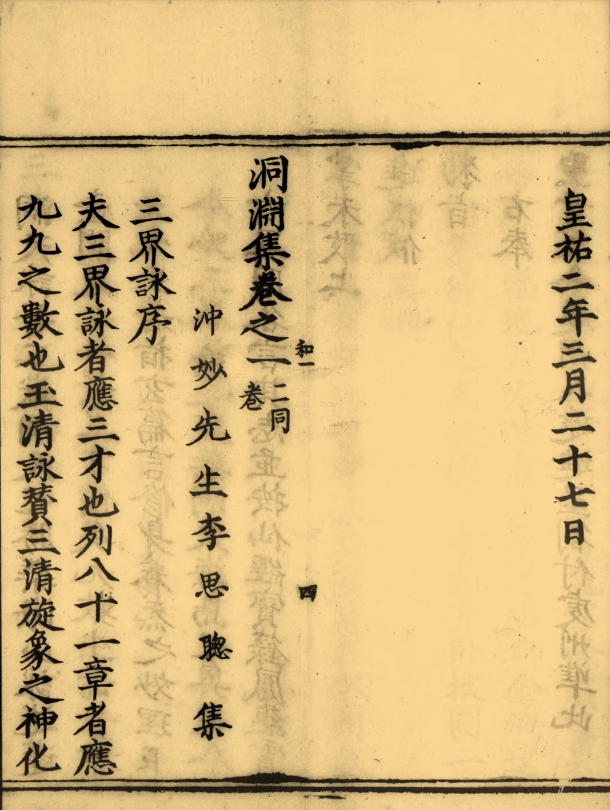 皇祐二年三月二十七日
和一
四
洞淵集卷之一二同卷
沖妙先生李思聰集
三界詠序
夫三界詠者應三才也列八十一章者應
九九之數也玉清詠贊三清旋象之神化